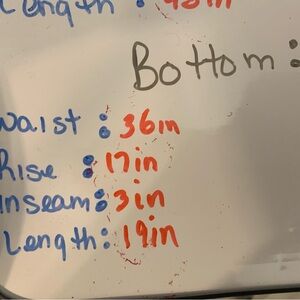 Length : 48in
Bottom :
Waist : 36in
Rise : 17in
Inseam: 3in
Length: 19in